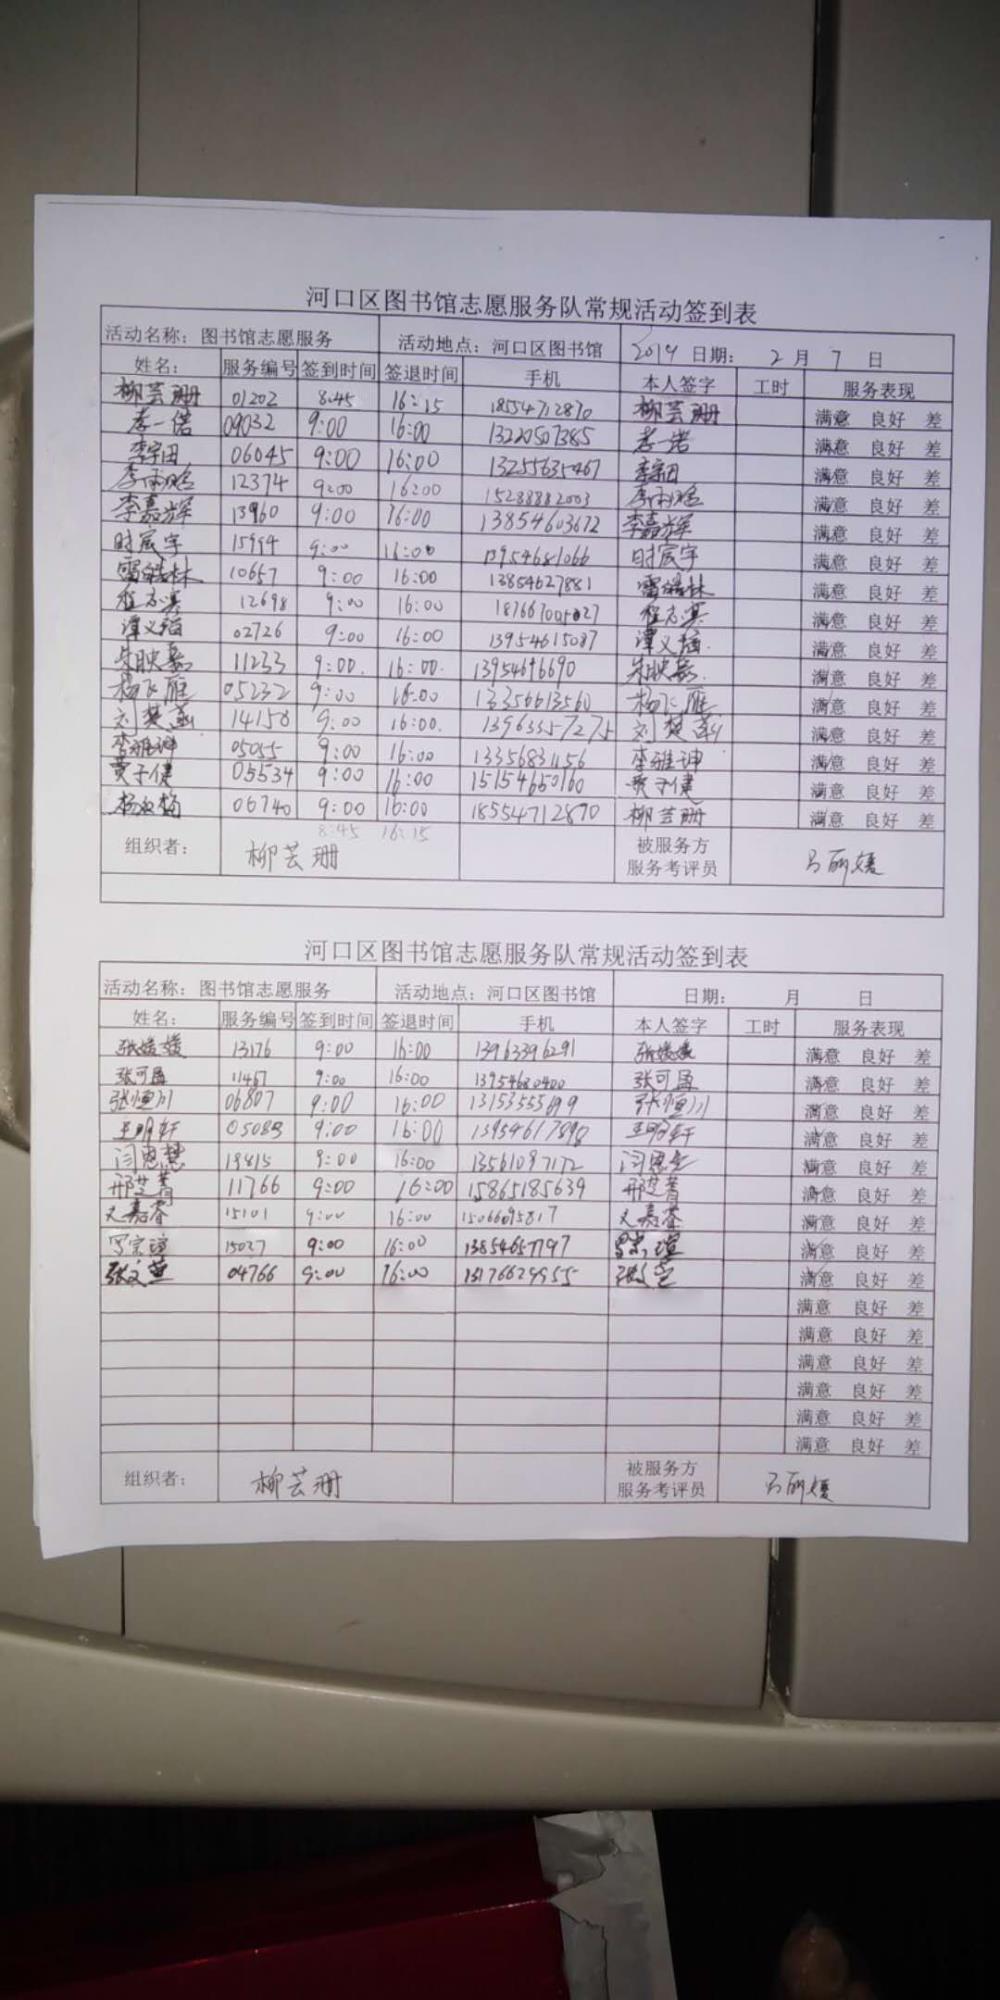 河口区图书馆志愿服务队常规活动签到表
活动名称：图书馆志愿服务 活动地点：河口区图书馆 2019 日期： 2 月 7 日
姓名： 服务编号 签到时间 签退时间 手机 本人签字 工时 服务表现
柳芸珊 01202 8:45 16:15 18554712870 柳芸珊 满意 良好 差
李一诺 09032 9:00 16:00 13220507385 满意 良好 差
李宇田 06045 9:00 16:00 李宇田 满意 良好 差
12374 9:00 16:00 15288882003 满意 良好 差
李嘉辉 13960 9:00 16:00 13854603672 李嘉辉 满意 良好 差
时宸宇 15994 9:00 16:00 13954681066 时宸宇 满意 良好 差
10657 9:00 16:00 13854627881 满意 良好 差
程志淇 12698 9:00 16:00 187667005027 程志淇 满意 良好 差
02726 9:00 16:00 13954615087 满意 良好 差
朱映嘉 11233 9:00. 16:00. 13954696690 朱映嘉. 满意 良好 差
杨飞雁 05232 9:00 16:00 13356613560 杨飞雁 满意 良好 差
刘楚菡 14158 9:00 16:00. 13963357275 刘楚菡 满意 良好 差
李雅坤 05055 9:00 16:00 13356831156 李雅坤 满意 良好 差
贾子健 05534 9:00 16:00 15154650160 贾子健 满意 良好 差
06740 9:00 16:00 18554712870 柳芸珊 满意 良好 差
8:45 16:15
组织者： 柳芸珊 被服务方 服务考评员 吕丽媛
河口区图书馆志愿服务队常规活动签到表
活动名称：图书馆志愿服务 活动地点：河口区图书馆 日期： 月 日
姓名： 服务编号 签到时间 签退时间 手机 本人签字 工时 服务表现
张媛媛 13176 9:00 16:00 13963396291 张媛媛 满意 良好 差
张可盈 11467 9:00 16:00 13954680400 张可盈 满意 良好 差
张恒川 06807 9:00 16:00 张恒川 满意 良好 差
王明轩 05083 9:00 16:00 13954617898 王明轩 满意 良好 差
闫思慧 19815 9:00 16:00 13561097172 满意 良好 差
邢芝菁 11766 9:00 16:00 15865185639 邢芝菁 满意 良好 差
15101 9:00 16:00 15066095817 满意 良好 差
15027 9:00 16:00 13854657797 满意 良好 差
张文萱 04766 9:00 16:00 13176629955 满意 良好 差
满意 良好 差
满意 良好 差
满意 良好 差
满意 良好 差
满意 良好 差
满意 良好 差
组织者： 柳芸珊 被服务方 服务考评员 吕丽媛